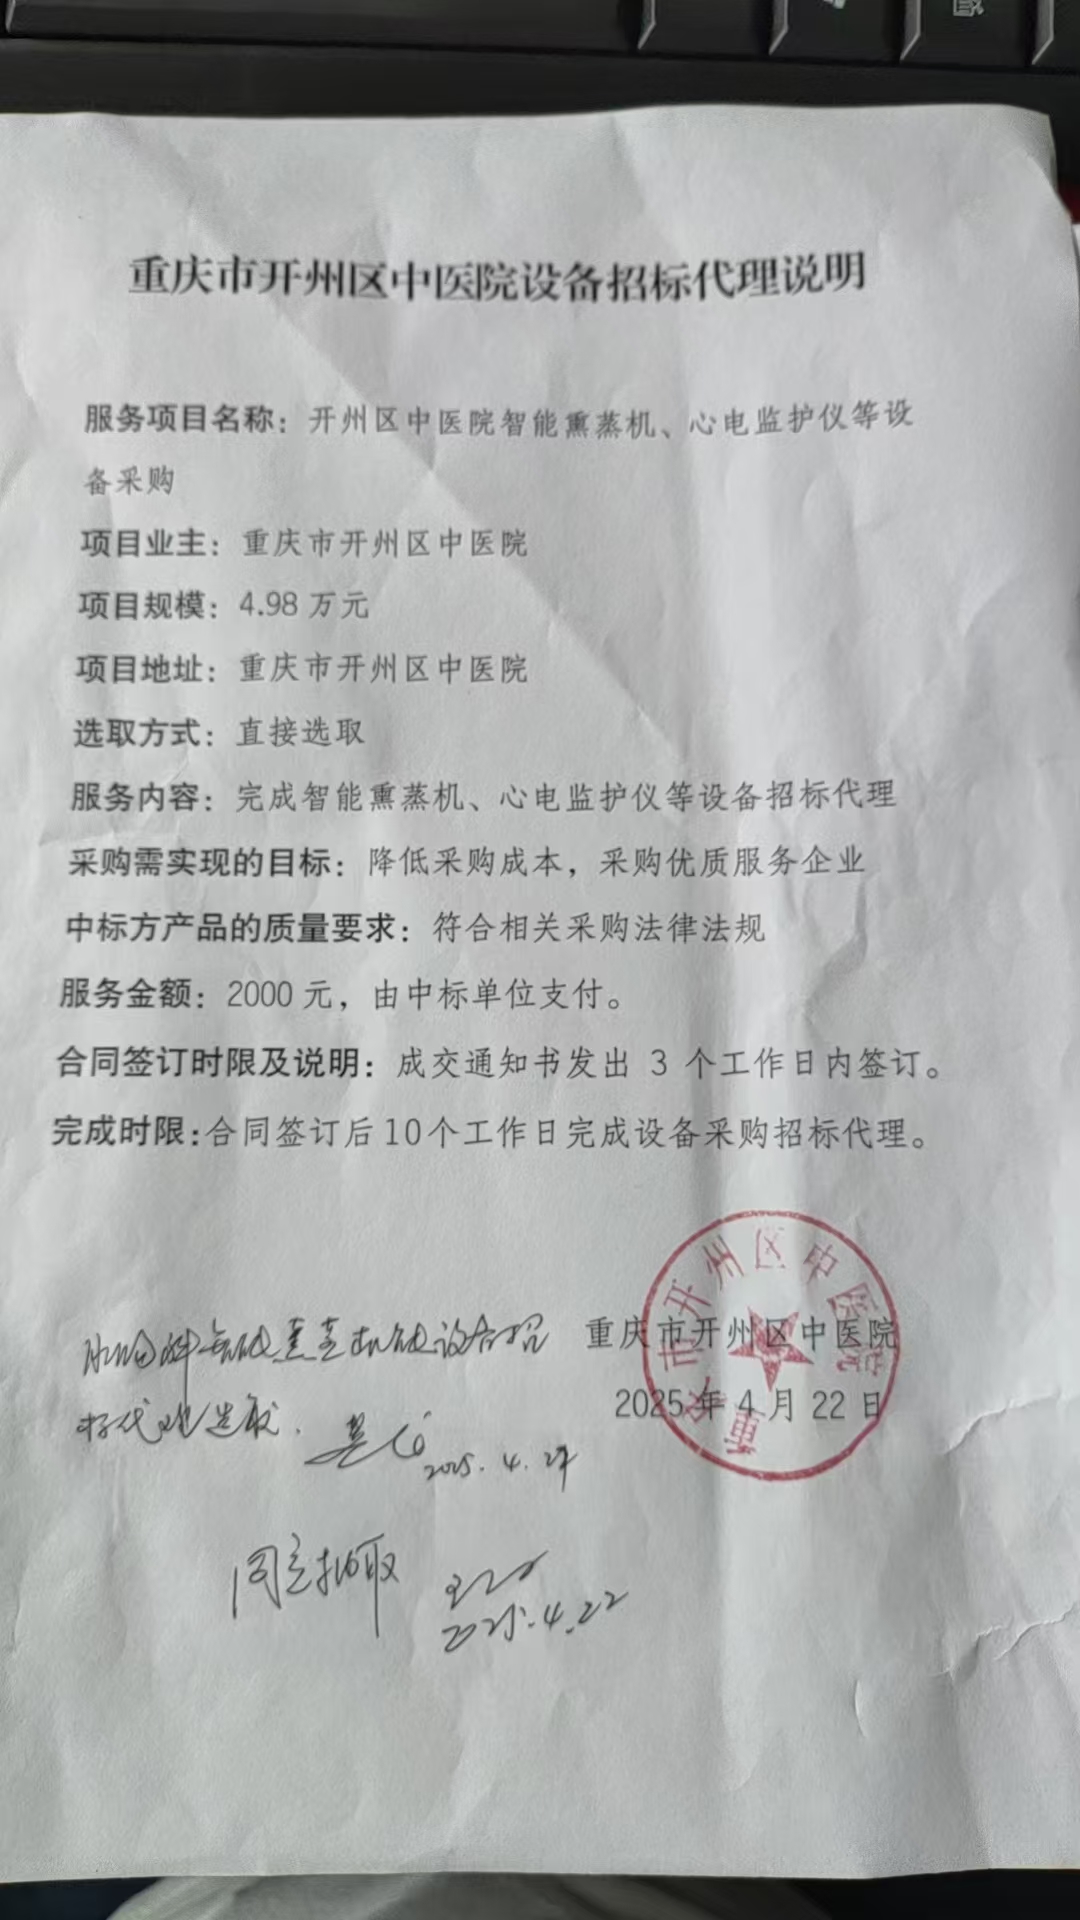 重庆市开州区中医院设备招标代理说明
服务项目名称：开州区中医院智能熏蒸机、心电监护仪等设
备采购
项目业主：重庆市开州区中医院
项目规模：4.98 万元
项目地址：重庆市开州区中医院
选取方式：直接选取
服务内容：完成智能熏蒸机、心电监护仪等设备招标代理
采购需实现的目标：降低采购成本，采购优质服务企业
中标方产品的质量要求：符合相关采购法律法规
服务金额：2000 元，由中标单位支付。
合同签订时限及说明：成交通知书发出 3 个工作日内签订。
完成时限：合同签订后 10 个工作日完成设备采购招标代理。
重庆市开州区中医院
2025 年 4 月 22 日
重庆市开州区中医院
智能熏蒸机设备招
标代理选取.
2025.4.22
同意抽取
2025.4.22